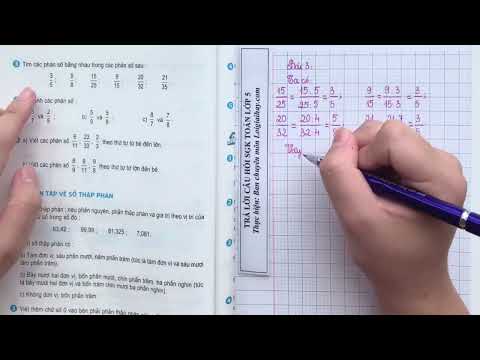 3 Tìm các phân số bằng nhau trong các phân số sau :
3/5 ; 5/8 ; 15/25 ; 9/15 ; 20/32 ; 21/35
các phân số :
b) 5/9 và 5/8 ; c) 8/7 và 7/8
a) Viết các phân số 6/11 ; 23/33 ; 2/3 theo thứ tự từ bé đến lớn.
các phân số 8/9 ; 8/11 ; 9/8 theo thứ tự từ lớn đến bé.
TẬP VỀ SỐ THẬP PHÂN
phân ; nêu phần nguyên, phần thập phân và giá trị theo vị trí của
số trong số đó :
63,42 ; 99,99 ; 81,325 ; 7,081.
số thập phân có :
Tám đơn vị, sáu phần mười, năm phần trăm (tức là tám đơn vị và sáu mươi
lăm phần trăm).
b) Bảy mươi hai đơn vị, bốn phần mười, chín phần trăm, ba phần nghìn (tức
là bảy mươi hai đơn vị và bốn trăm chín mươi ba phần nghìn).
c) Không đơn vị, bốn phần trăm.
3 Viết thêm chữ số 0 vào bên phải phần thập phân của mỗi số thập phân
TRẢ LỜI CÂU HỎI SGK TOÁN LỚP 5
Thực hiện: Ban chuyên môn Loigiaihay.com
Bài 3.
Ta có:
15/25 = 15:5/25:5 = 3/5 ; 9/15 = 9:3/15:3 = 3/5
20/32 = 20:4/32:4 = 5 21 21:7 = 3/5
Vậy